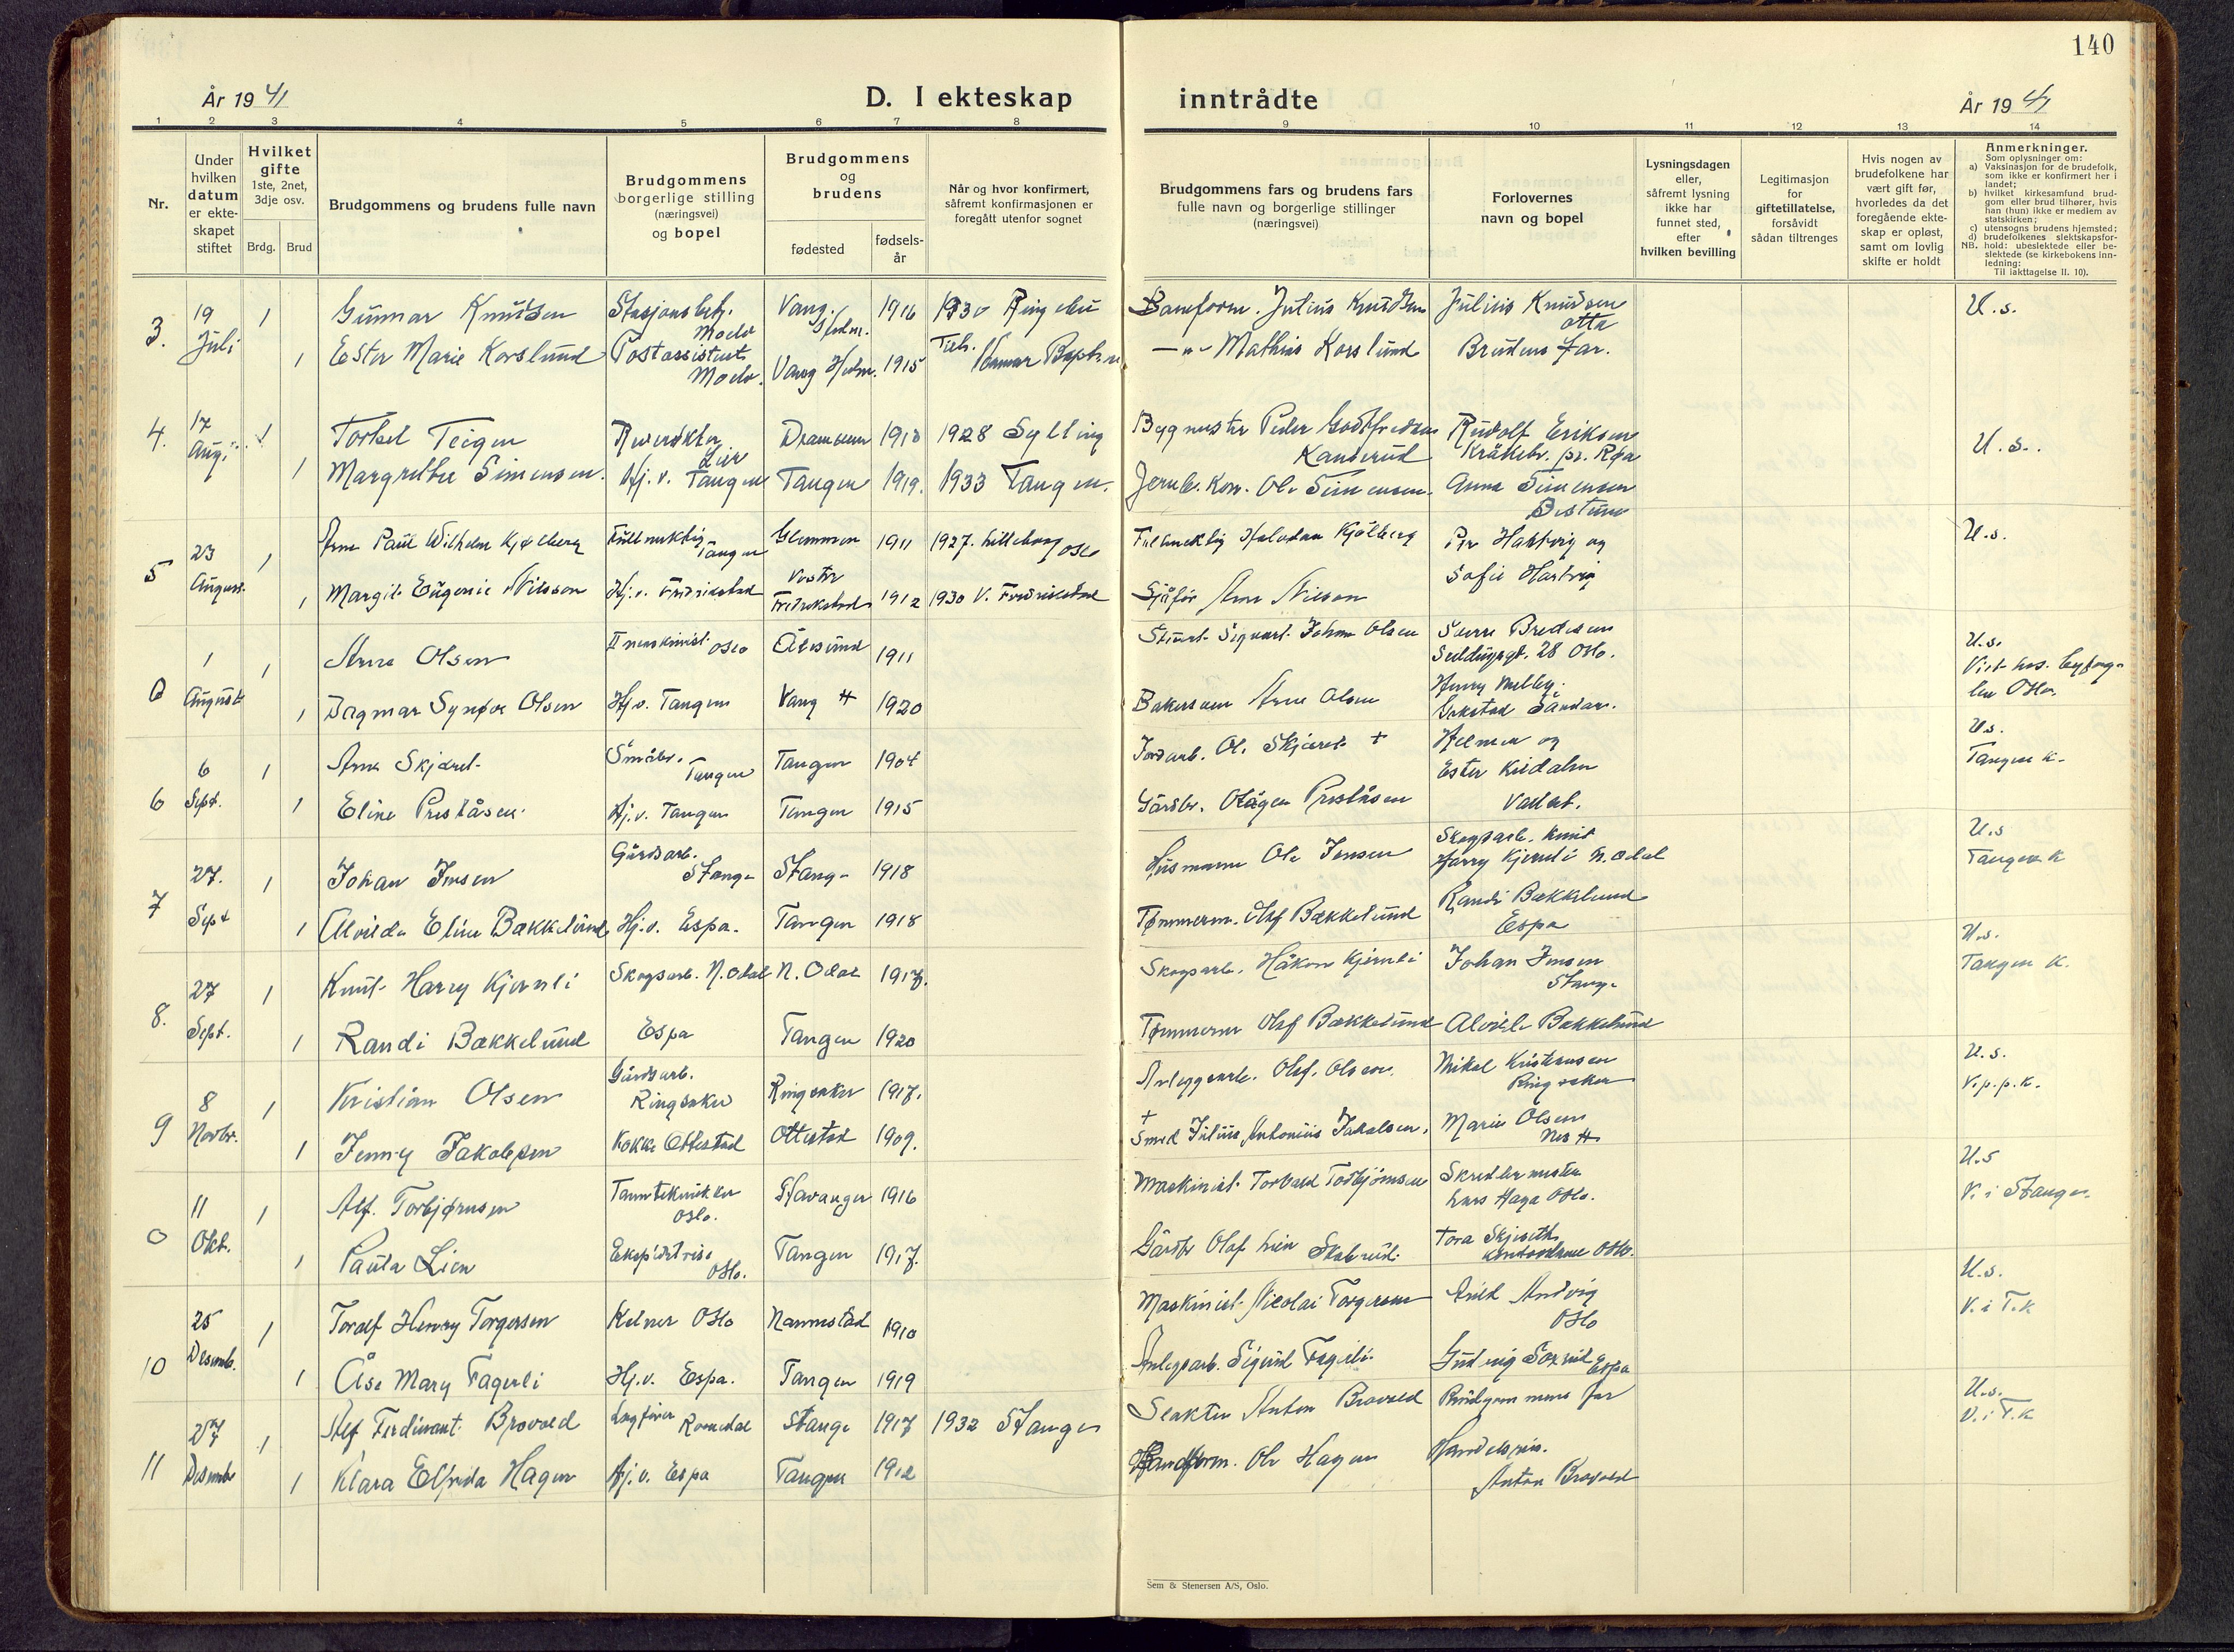 140
År 1941
D. I ekteskap
inntrådte
År 1941
1 2 3 4 5 6 7 8 9 10 11 12 13 14
Nr.
Under hvilken datum er ekteskapet stiftet
Hvilket gifte
1ste, 2net, 3dje osv.
Brdg. Brud
Brudgommens og brudens fulle navn
Brudgommens borgerlige stilling (næringsvei) og bopel
Brudgommens og brudens
fødested
fødselsår
Når og hvor konfirmert, såfremt konfirmasjonen er foregått utenfor sognet
Brudgommens fars og brudens fars fulle navn og borgerlige stillinger (næringsvei)
Forlovernes navn og bopel
Lysningsdagen eller, såfremt lysning ikke har funnet sted, efter hvilken bevilling
Legitimasjon for giftetillatelse, forsåvidt sådan tiltrenges
Hvis nogen av brudefolkene har vært gift før, hvorledes da det foregående ekteskap er opløst, samt om lovlig skifte er holdt
Anmerkninger.
Som oplysninger om:
a) Vaksinasjon for de brudefolk, som ikke er konfirmert her i landet;
b) hvilket kirkesamfund brudgom eller brud tilhører, hvis han (hun) ikke er medlem av statskirken;
c) utensogns brudens hjemsted;
d) brudefolkenes slektskapsforhold: ubeslektede eller beslektede (se kirkebokens innledning:
NB. Til iakttagelse II. 10).
3. 19 Juli 1 Gunnar Knudsen Stasjonsbetj. Moelv Vang Hedm. 1916 1930 Ringebu Baneform. Julius Knudsen Julius Knudsen Otta U.s.
1 Ester Marie Korslund Postassistent Moelv. Vang Hedm. 1915 Hamar -"- Mathias Korslund Brudens far.
4. 17 Aug. 1 Torkel Teigen Lier Drammen 1910 1928 Sylling Bygmester Peder Godtfredsen Rudolf Eriksen pr. Røa U.s.
1 Margrethe Simensen. Hj. v. Tangen Tangen 1919. 1933 Tangen. Ole Simensen. Anna Simensen Bestum
5 23 August. 1 Arne Paul Wilhelm Kjølberg Fullmektig Tangen Glemmen 1911 1927. Lilleborg Oslo Fullmektig Halvdan Kjølberg Per Hartvig og U.s.
1 Margit Eugenie Nilsson Hj. v. Fredrikstad Vestre Fredrikstad 1912 1930 V. Fredrikstad Sjåfør Arne Nilsson Sofie Hartvig
0 1 August 1 Arne Olsen II maskinist Oslo Ålesund 1911 Stuert Sigvart Johan Olsen Sverre Bredesen 28 Oslo. U.s.
1 Dagmar Synøve Olsen Hj. v. Tangen Vang H 1920 Bakersven Arne Olsen Henry Melby. Viet hos byfogden Oslo.
6 6 Sept. 1 Arne Skjæret Småbr. Tangen Tangen 1904 Jordarb. Ole Skjæret + Helmer og U.s. Tangen k.
1 Eline Preståsen. Hj. v. Tangen Tangen 1915 Gårdbr. Preståsen Ester Vallset.
7 27. Sept 1 Johan Jensen Gårdsarb. Stange Stange 1918 Husmann Ole Jensen Skogsarb. Knut Harry Kjernli N. Odal U.s Tangen k
1 Alvilde Eline Bækkelund Hj. v. Espa. Tangen 1918 Tømmerm. Olaf Bækkelund Randi Bækkelund Espa
8. 27 Sept. 1 Knut Harry Kjernli Skogsarb. N. Odal N. Odal 1917. Skogsarb. Håkon Kjernli Johan Jensen Stange U.s. Tangen k.
1 Randi Bækkelund Espa Tangen 1920 Tømmerm Olaf Bækkelund Alvilde Bækkelund
9 8 Novbr. 1 Kristian Olsen Gårdsarb. Ringsaker Ringsaker 1917. Anleggsarb. Olaf Olsen. Mikal Kristiansen Ringsaker U.s. V.p.p.k.
1 Jenny Jakobsen Kokke Ottestad Ottestad 1909. + Smed Julius Antonius Jakobsen. Marie Olsen Nes H
0 11 Okt. 1 Alf Torbjørnsen Tanntekniker Oslo. Stavanger 1916 Maskinist Torvald Torbjørnsen Skreddermester Lars Haga Oslo. U.s V. i Stange.
1 Paula Lien Ekspeditrise Oslo. Tangen 1917. Gårdbr Olaf Lien Tora Skjeseth Oslo.
10 25 Desemb. 1 Toralf Henry Torgersen Kelner Oslo Nannestad 1910 Maskinist Nicolai Torgersen Arild Andvig Oslo U.s. V. i T.k
1 Åse Mary Fagerli Hj. v. Espa. Tangen 1919 Anlegsarb. Sigurd Fagerli Espa
11 27 Desembr 1 Alf Ferdinant Brovold Romedal Stange 1917 1932 Stange Slakter Anton Brovold Brudgommens far U.s. V. i T.k
1 Klara Elfrida Hagen Hj. v. Espa Tangen 1912 Ole Hagen Anton Brovold
Sem & Stenersen A/S, Oslo.